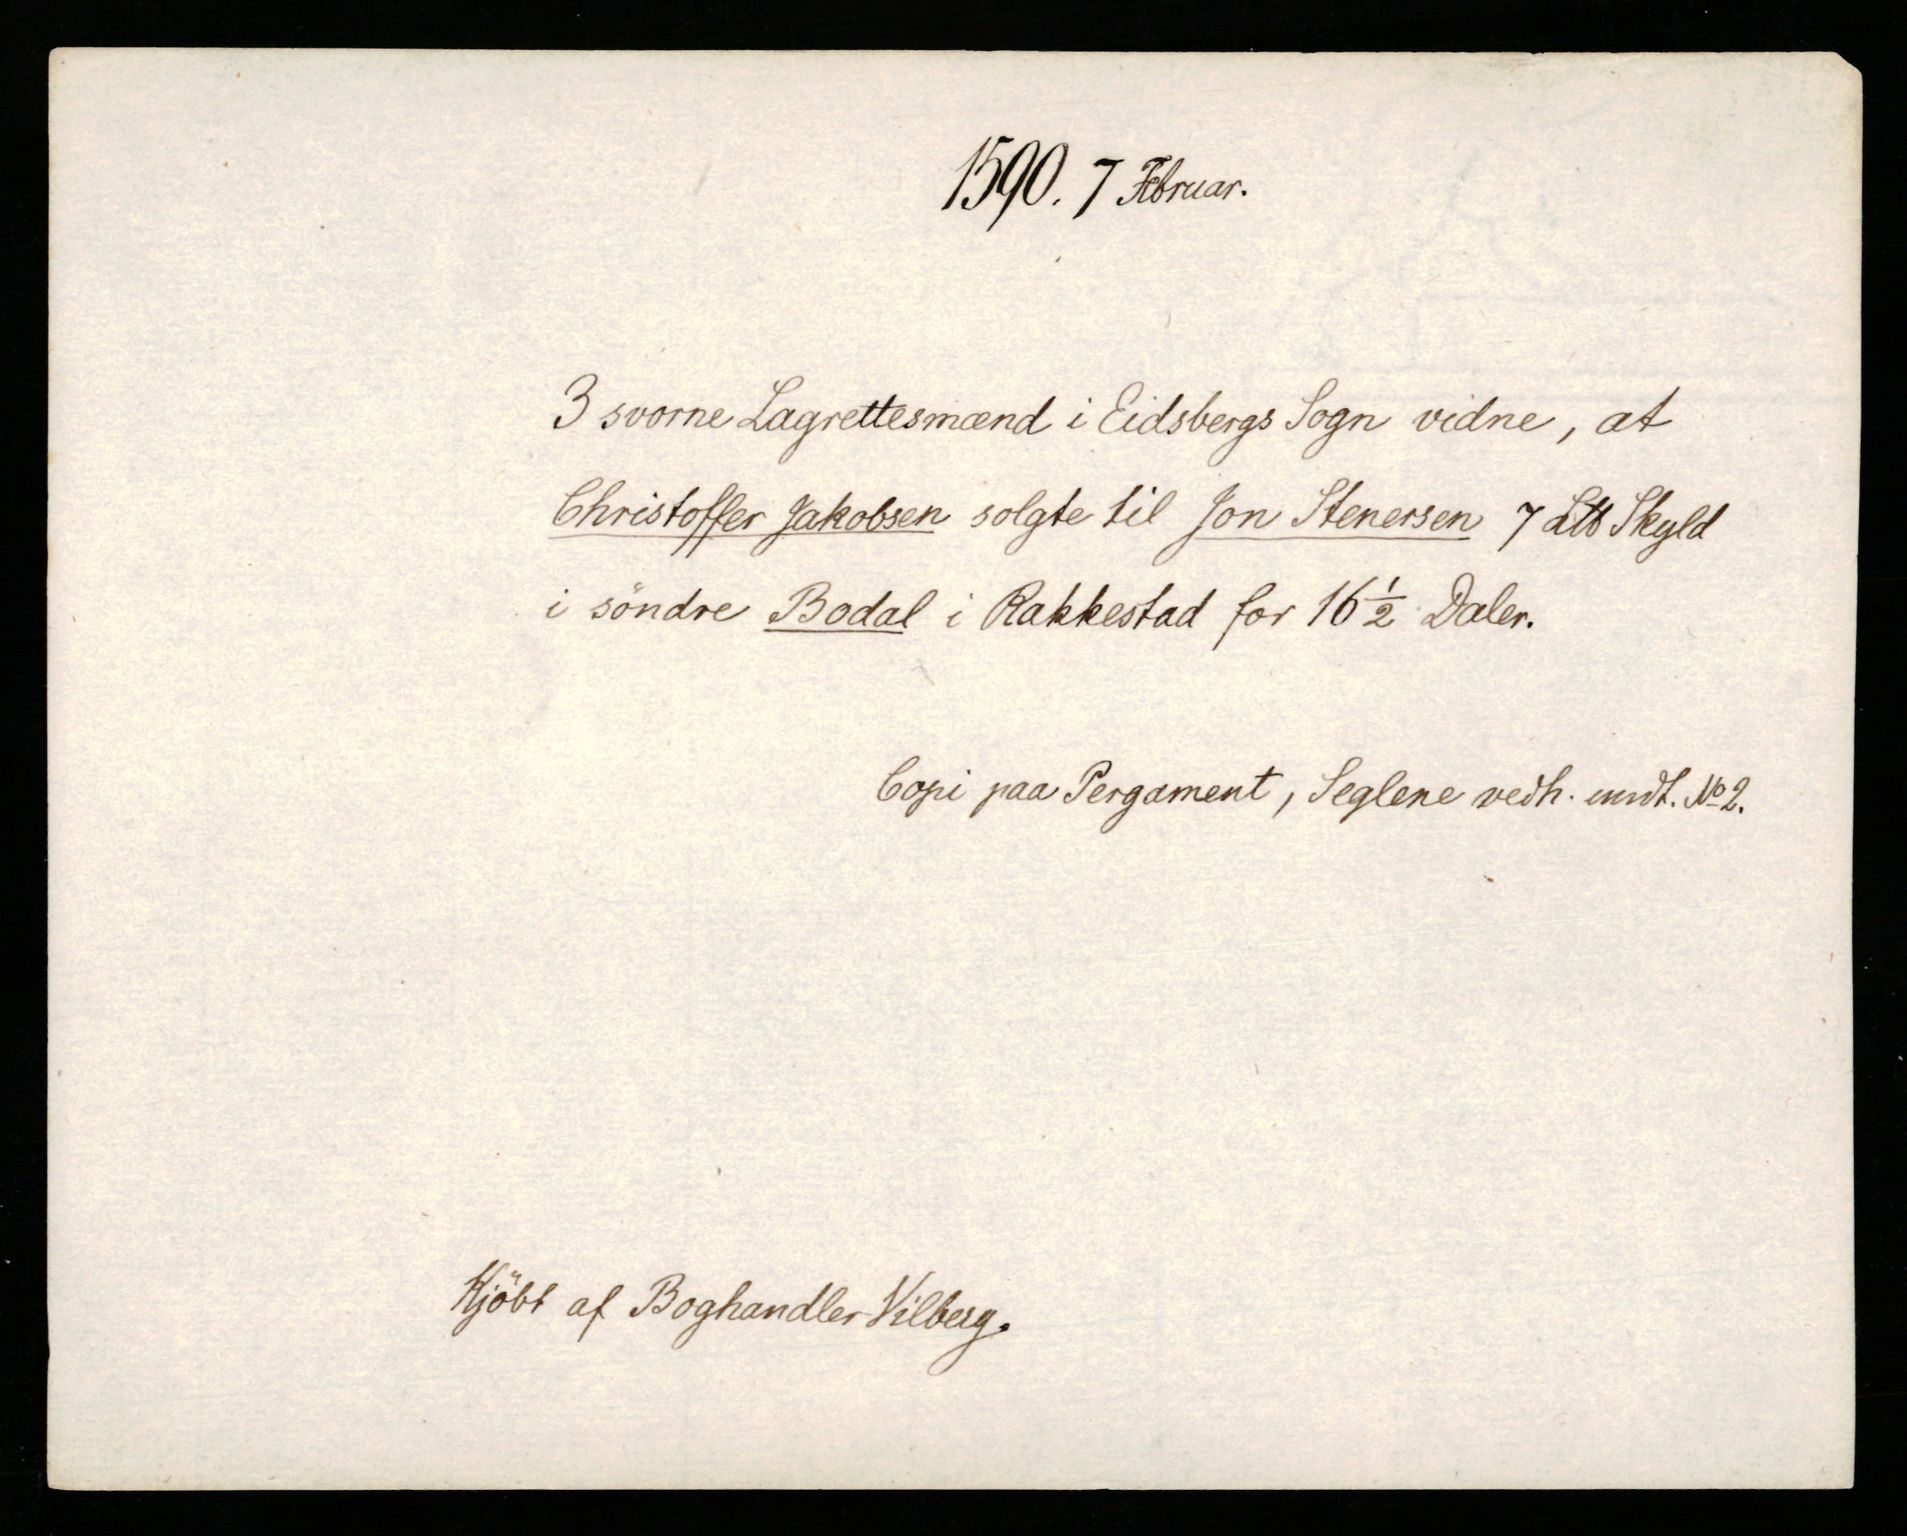 1590. 7 Februar.
3 svorne Lagrettesmænd i Eidsbergs Sogn vidne, at
Christoffer Jakobsen solgte til Jon Stenersen 7 L℔ Skyld
i söndre Bodal i Rakkestad for 16 ½ Daler.
Copi paa Pergament, Seglene vedh. undt. No 2.
Kjöbt af Boghandler Vilberg.